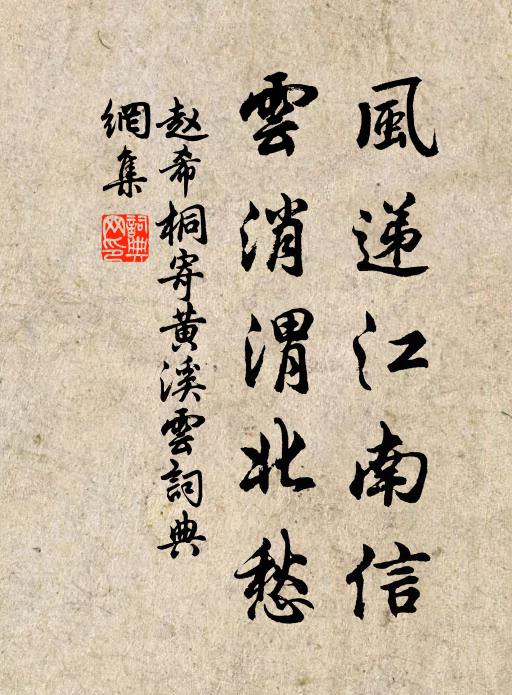 風递江南信
雲消渭北愁
赵希桐寄黄溪雲詞典
網集
詞典
网印